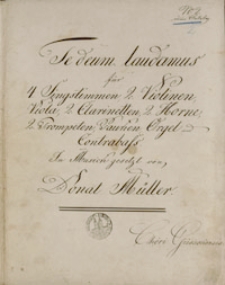 Te deum laudamus
für
4 Singstimmen, 2 Violinen,
Viola, 2 Clarinetten, 2 Horne,
2 Trompeten, Paucken, Orgel
Contrabass
In Musick gesetzt von
Donat Müller.
Chori